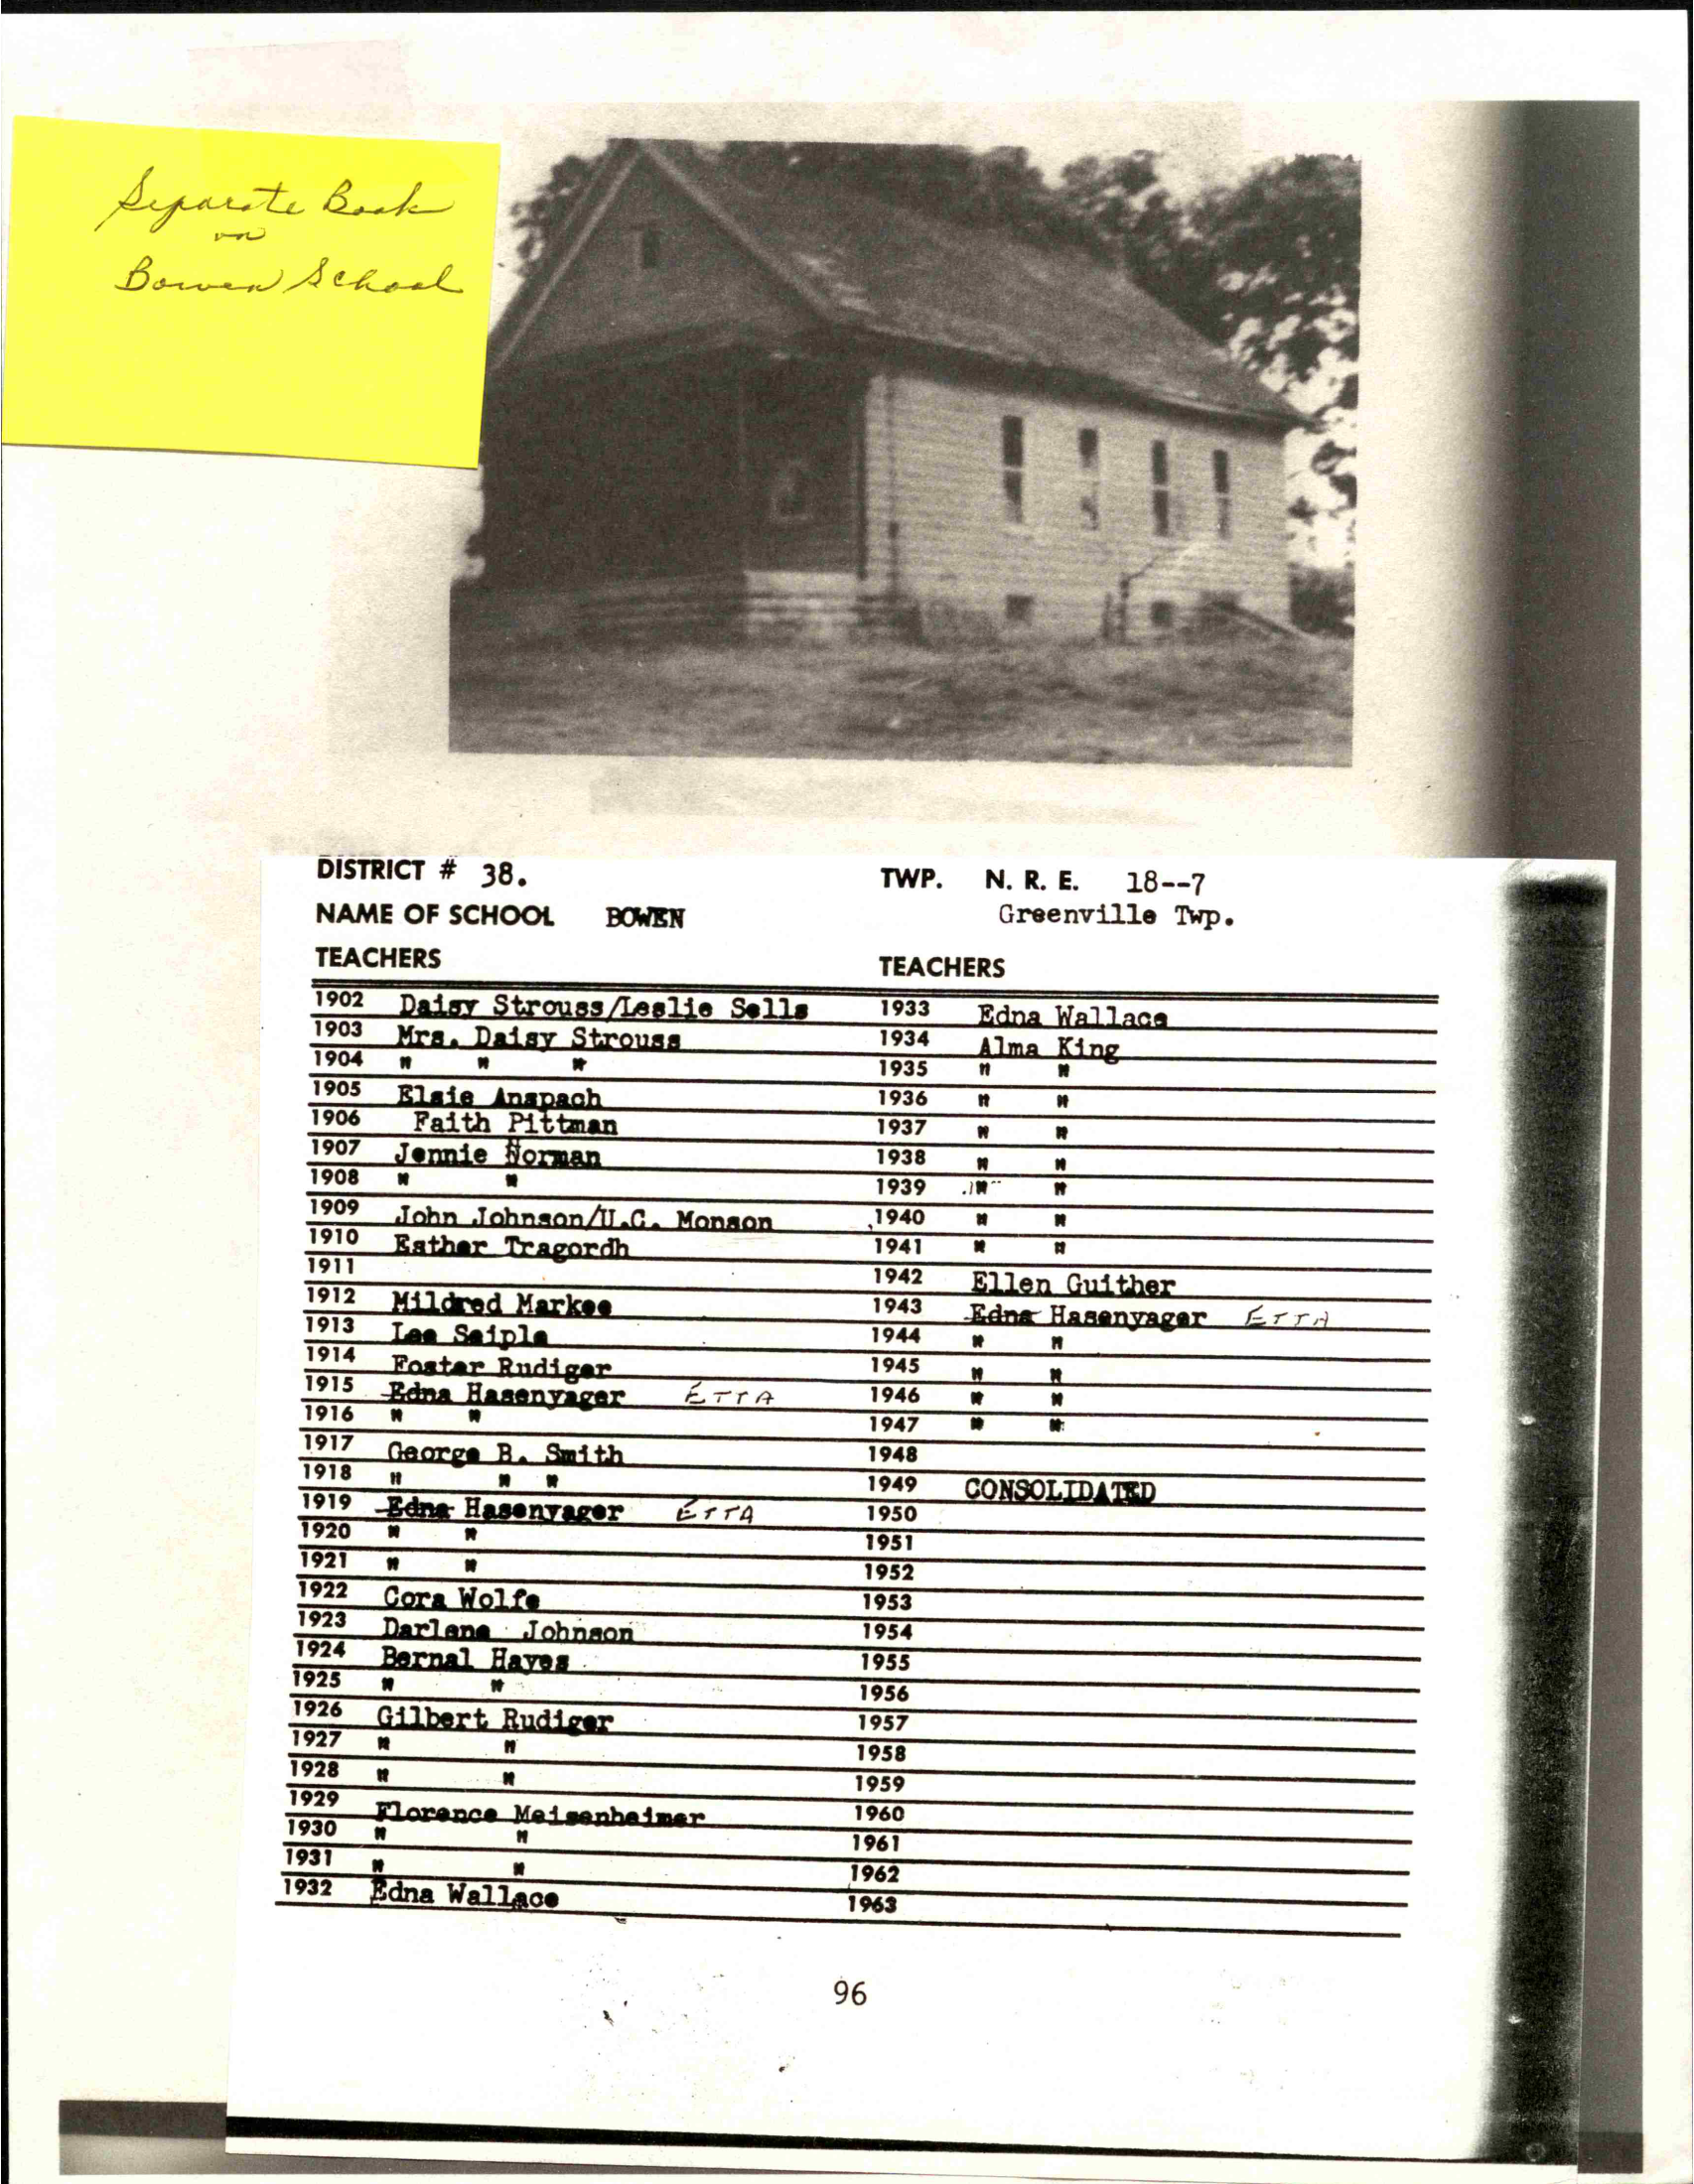 Separate Book
on
Bowen School
DISTRICT # 38.
TWP. N. R. E. 18--7
NAME OF SCHOOL BOWEN
Greenville Twp.
TEACHERS
1902 Daisy Strouss/Leslie Sells
1903 Mrs. Daisy Strouss
1904 " " "
1905 Elsie Anspach
1906 Faith Pittman
1907 Jennie Norman
1908 " "
1909 John Johnson/U.C. Monson
1910 Esther Tragordh
1911
1912 Mildred Markee
1913 Lee Seiple
1914 Foster Rudiger
1915 Edna Hasenyager ETTA
1916 " "
1917 George B. Smith
1918 " " "
1919 Edna Hasenyager ETTA
1920 " "
1921 " "
1922 Cora Wolfe
1923 Darlene Johnson
1924 Bernal Hayes
1925 " "
1926 Gilbert Rudiger
1927 " "
1928 " "
1929 Florence Meisenheimer
1930 " "
1931 " "
1932 Edna Wallace
TEACHERS
1933 Edna Wallace
1934 Alma King
1935 " "
1936 " "
1937 " "
1938 " "
1939 " "
1940 " "
1941 " "
1942 Ellen Guither
1943 Edna Hasenyager ETTA
1944 " "
1945 " "
1946 " "
1947 " "
1948
1949 CONSOLIDATED
1950
1951
1952
1953
1954
1955
1956
1957
1958
1959
1960
1961
1962
1963
96